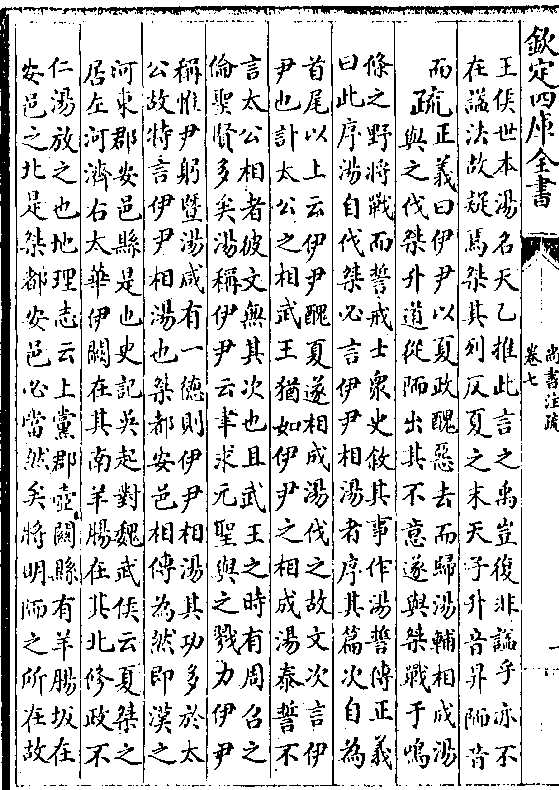 欽定四庫全書
尚書注疏
卷七
一
王侯世本湯名天乙推此言之禹豈復非諡乎亦不
在諡法故疑焉桀其列反夏之末天子升音昇陑音
而
疏
正義曰伊尹以夏政醜惡去而歸湯輔相成湯
與之伐桀升道從陑出其不意遂與桀戰于鳴
條之野將戰而誓戒士眾史敘其事作湯誓傳正義
曰此序湯自伐桀必言伊尹相湯者序其篇次自為
首尾以上云伊尹醜夏遂相成湯伐之故文次言伊
尹也計太公之相武王猶如伊尹之相成湯泰誓不
言太公相者彼文無其次也且武王之時有周召之
倫聖賢多矣湯稱伊尹云聿求元聖與之戮力伊尹
稱惟尹躬暨湯咸有一德則伊尹相湯其功多於太
公故特言伊尹相湯也桀都安邑相傳為然即漢之
河東郡安邑縣是也史記吳起對魏武侯云夏桀之
居左河濟右太華伊闕在其南羊腸在其北修政不
仁湯放之也地理志云上黨郡壺關縣有羊腸坂在
安邑之北是桀都安邑必當然矣將明陑之所在故